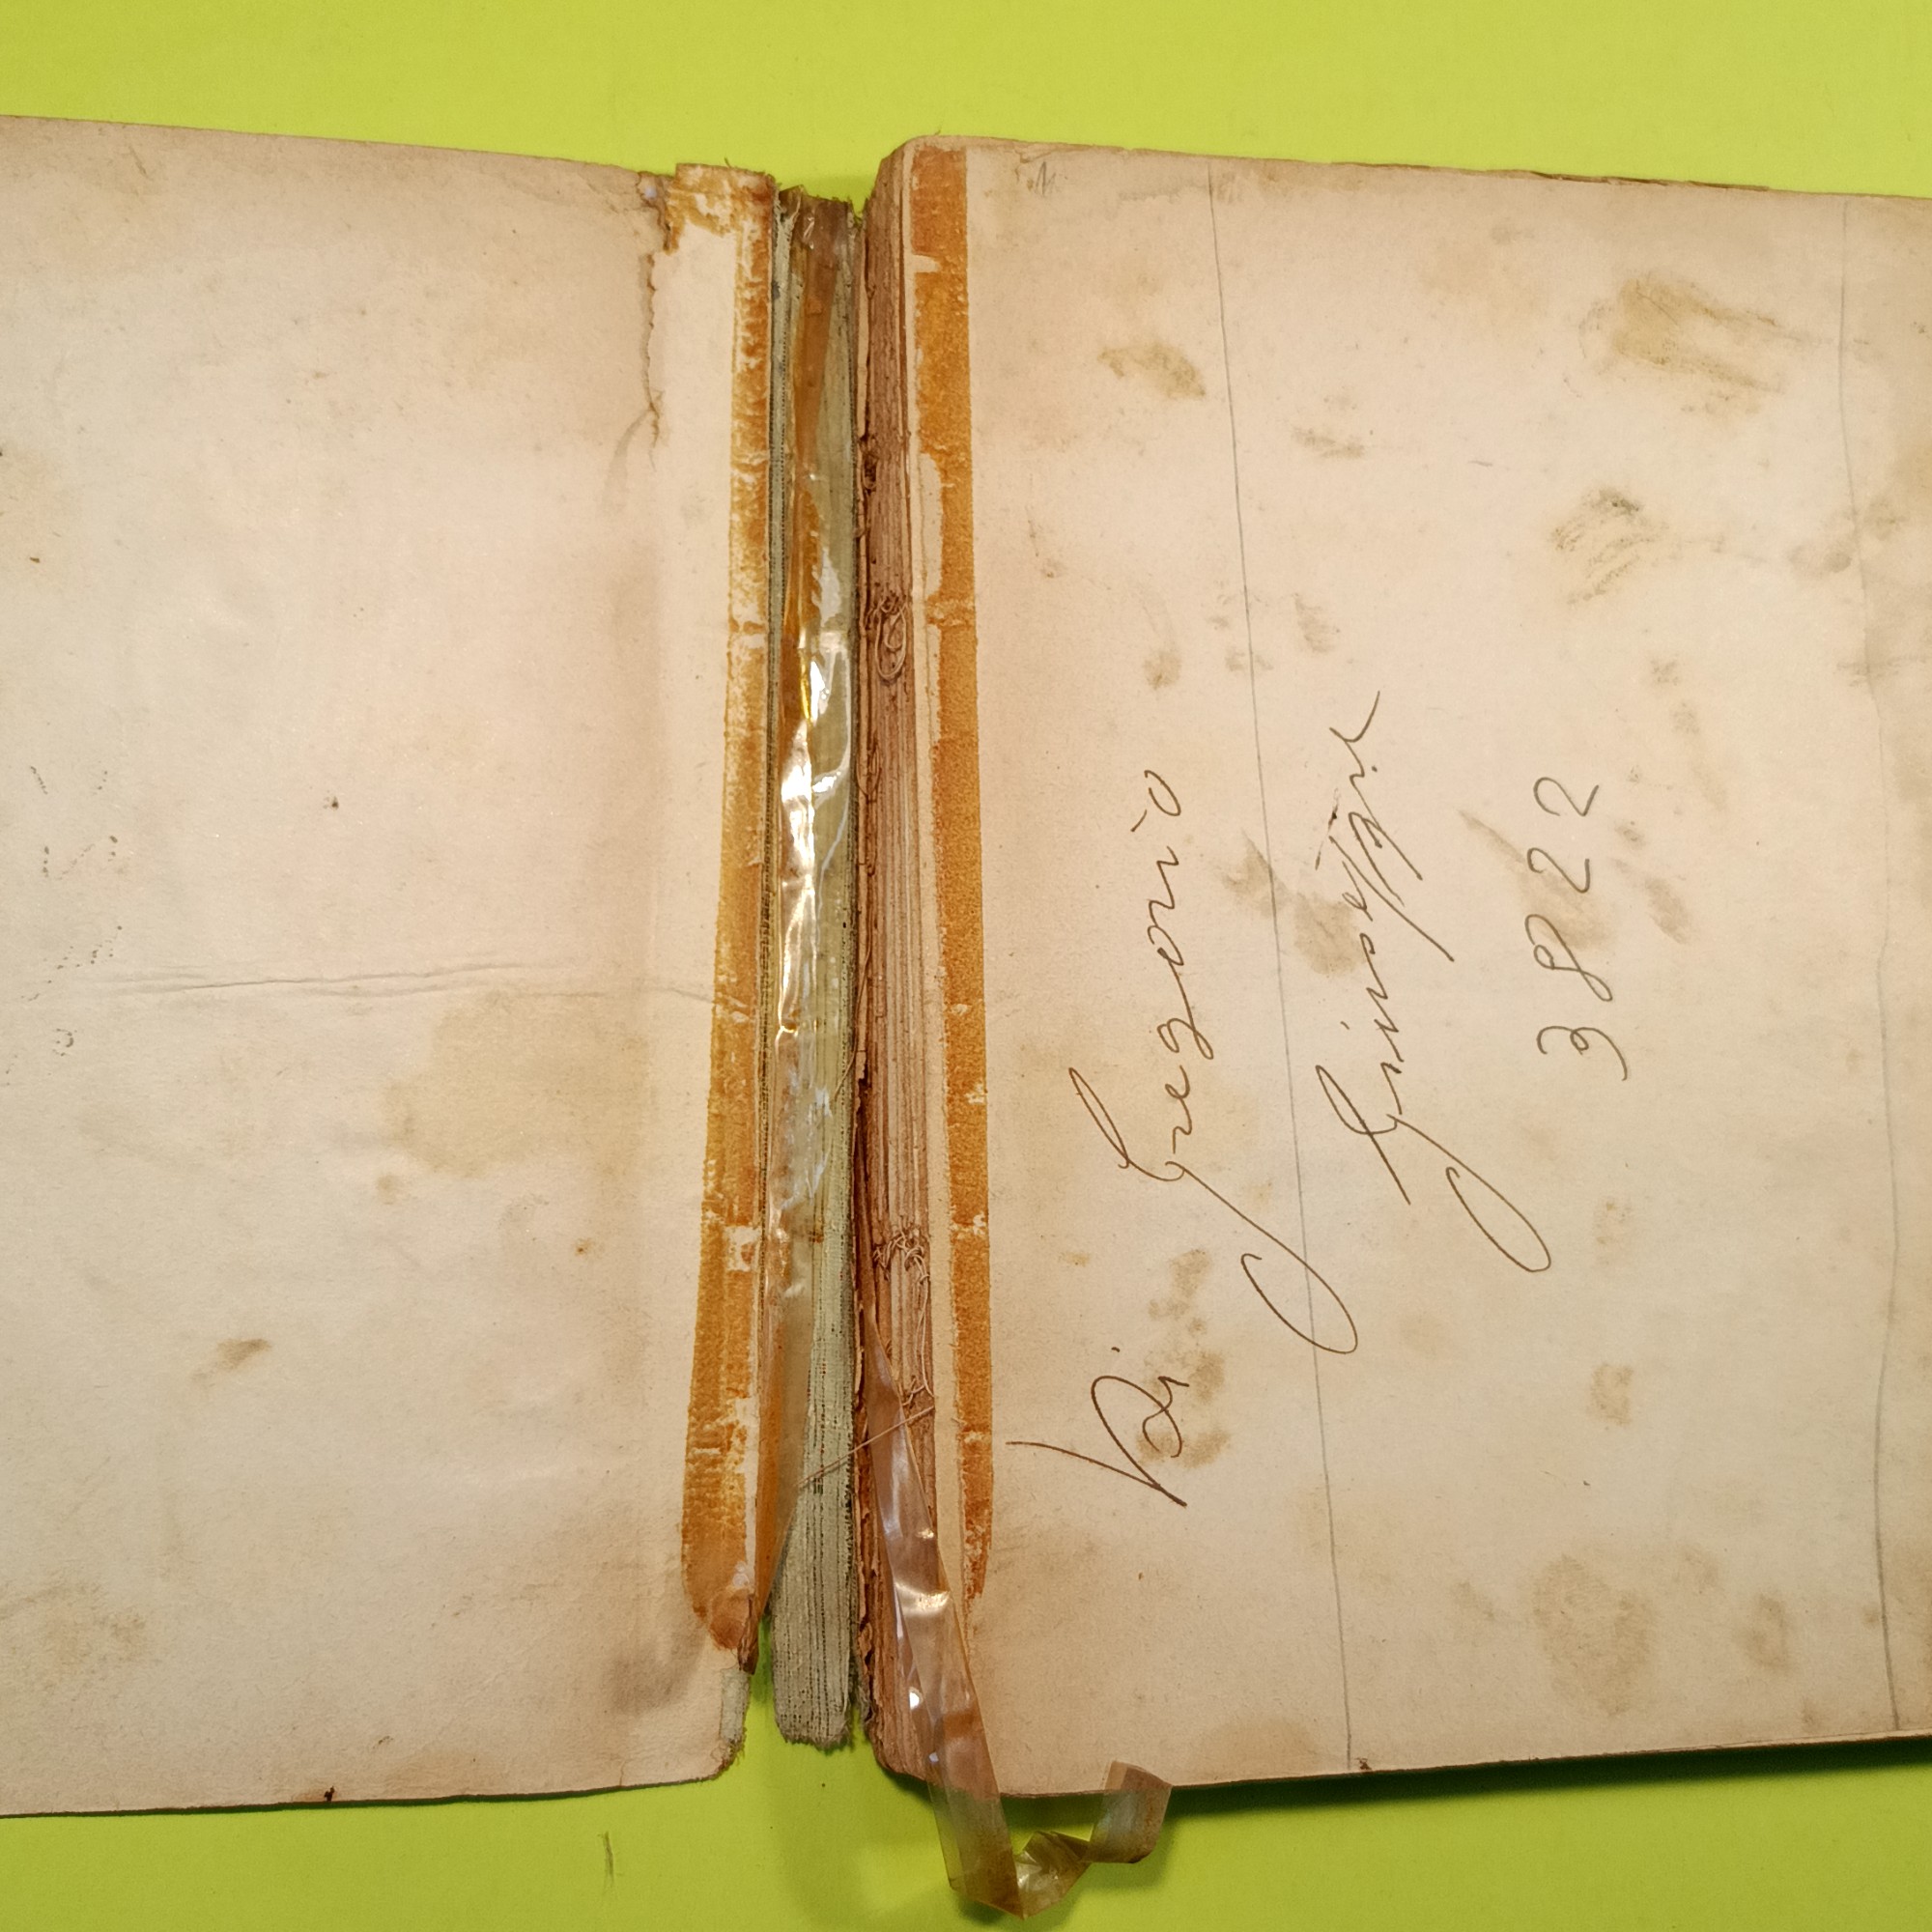 Di Gregorio
Giuseppe
3822